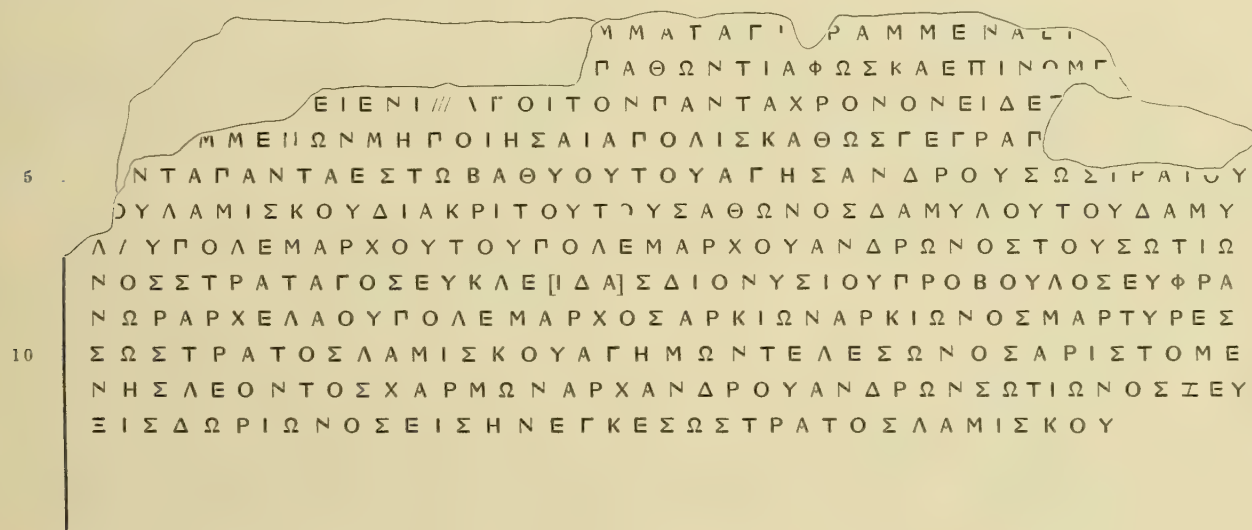 ΜΜΑΤΑΓΙ ΡΑΜΜΕΝΑ
ΠΑΘΩΝΤΙΑΦΩΣΚΑΕΠΙΝΟΜΓ
ΕΙΕΝΙ ΓΟΙΤΟΝΠΑΝΤΑΧΡΟΝΟΝΕΙΔΕ
ΜΜΕΝΩΝΜΗΠΟΙΗΣΑΙΑΠΟΛΙΣΚΑΘΩΣΓΕΓΡΑΠ
5 ΝΤΑΠΑΝΤΑΕΣΤΩΒΑΘΥΟΥΤΟΥΑΓΗΣΑΝΔΡΟΥΣΩΣΤΡΑΤΟΥ
ΟΥΛΑΜΙΣΚΟΥΔΙΑΚΡΙΤΟΥΤΟΥΣΑΘΩΝΟΣΔΑΜΥΛΟΥΤΟΥΔΑΜΥ
Λ/ΥΠΟΛΕΜΑΡΧΟΥΤΟΥΠΟΛΕΜΑΡΧΟΥΑΝΔΡΩΝΟΣΤΟΥΣΩΤΙΩ
ΝΟΣΣΤΡΑΤΑΓΟΣΕΥΚΛΕ[ΙΔΑ]ΣΔΙΟΝΥΣΙΟΥΠΡΟΒΟΥΛΟΣΕΥΦΡΑ
ΝΩΡΑΡΧΕΛΑΟΥΠΟΛΕΜΑΡΧΟΣΑΡΚΙΩΝΑΡΚΙΩΝΟΣΜΑΡΤΥΡΕΣ
10 ΣΩΣΤΡΑΤΟΣΛΑΜΙΣΚΟΥΑΓΗΜΩΝΤΕΛΕΣΩΝΟΣΑΡΙΣΤΟΜΕ
ΝΗΣΛΕΟΝΤΟΣΧΑΡΜΩΝΑΡΧΑΝΔΡΟΥΑΝΔΡΩΝΣΩΤΙΩΝΟΣΖΕΥ
ΞΙΣΔΩΡΙΩΝΟΣΕΙΣΗΝΕΓΚΕΣΩΣΤΡΑΤΟΣΛΑΜΙΣΚΟΥ